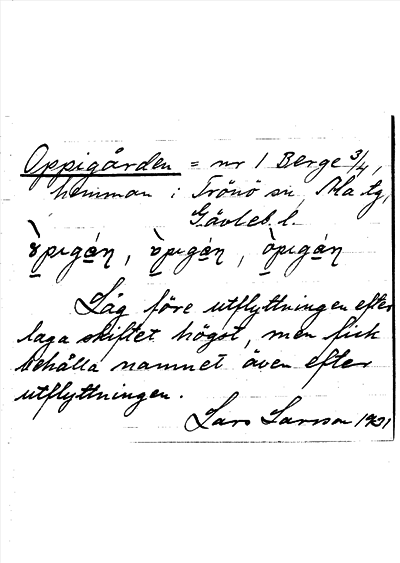 Oppigården = nr 1 Berge 3/4,
hemman i Trönö sn, Ala tg,
Gävleb. l.
Låg före utflyttningen efter
laga skiftet högst, men fick
behålla namnet även efter
utflyttningen.
Lars Larsson